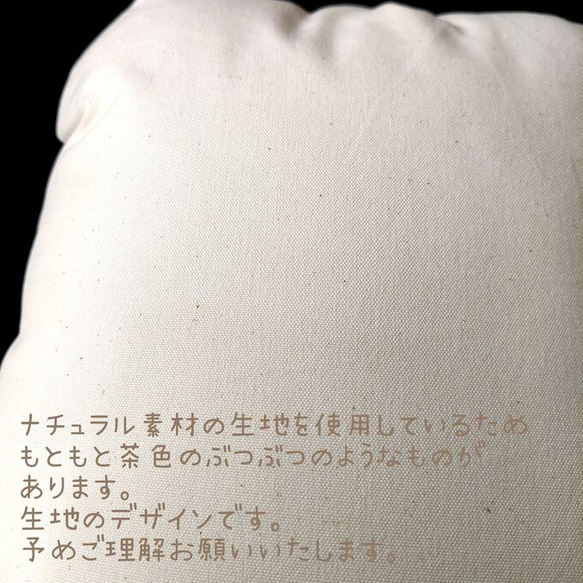 ナチュラル素材の生地を使用しているため
もともと茶色のぶつぶつのようなものが
あります。
生地のデザインです。
予めご理解お願いいたします。